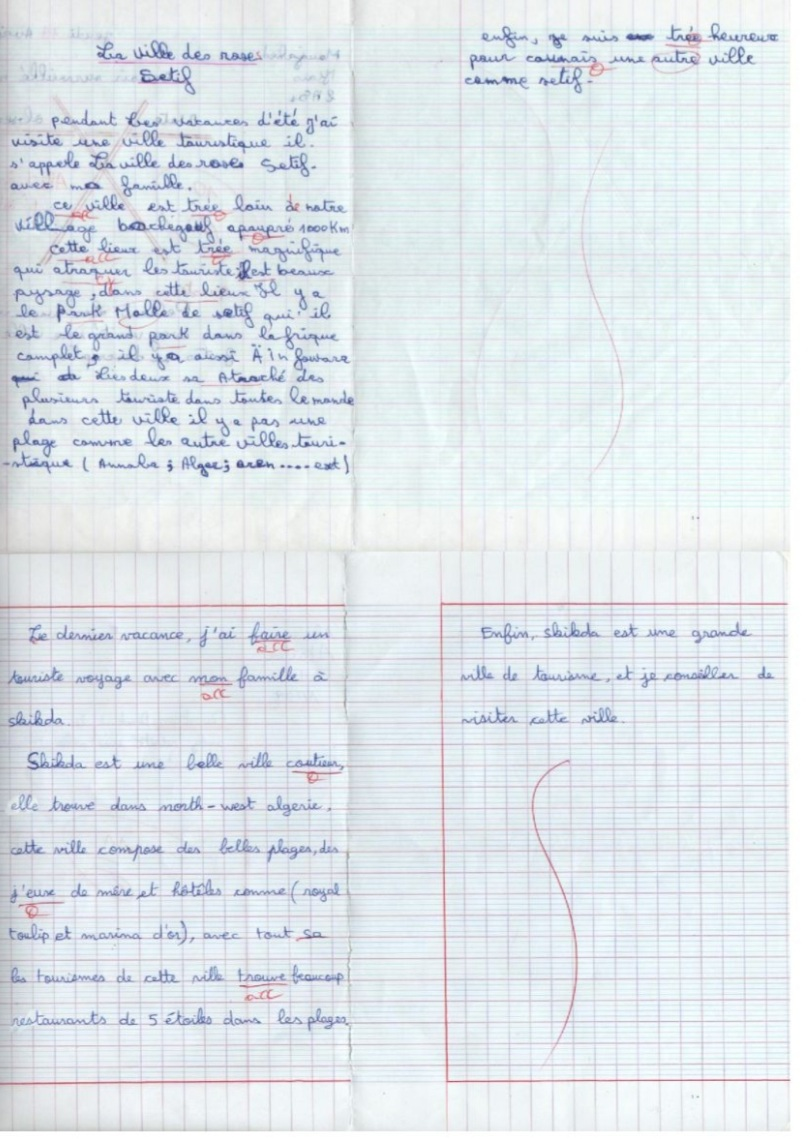 La ville des roses
Setif
pendant Les vacances d'été j'ai
visite une ville touristique il.
s'appele La ville des roses Setif.
avec ma famille.
ce ville est trée loin de notre
village apaupré 1000 Km
cette lieux est trée magnifique
qui atraquer les touriste est beaux
paysage, dans cette lieux Il y a
le Park Malle de setif qui il
est le grand park dans la frique
complet, il ya aussi Äin fowara
Lies deux sa Atraché des
plusieurs touriste dans toutes le monde
dans cette ville il y a pas une
plage comme les autre villes touri-
-stique ( Annaba ; Alger; oren .... ext )
enfin, je suis trée heureux
pour counais une autre ville
comme setif.
Le dernier vacance, j'ai faire un
acc
touriste voyage avec mon famille à
acc
skikda.
Skikda est une belle ville coutieur,
O
elle trouve dans north-west algerie,
cette ville compose des belles plages, des
j'eux de mére, et hôtéles comme ( royal
O
toulip et marina d'or), avec tout sa
les tourismes de cette ville trouve beaucoup
acc
restaurants de 5 étoiles dans les plages.
Enfin, skikda est une grande
ville de tourisme, et je conseiller de
visiter cette ville.